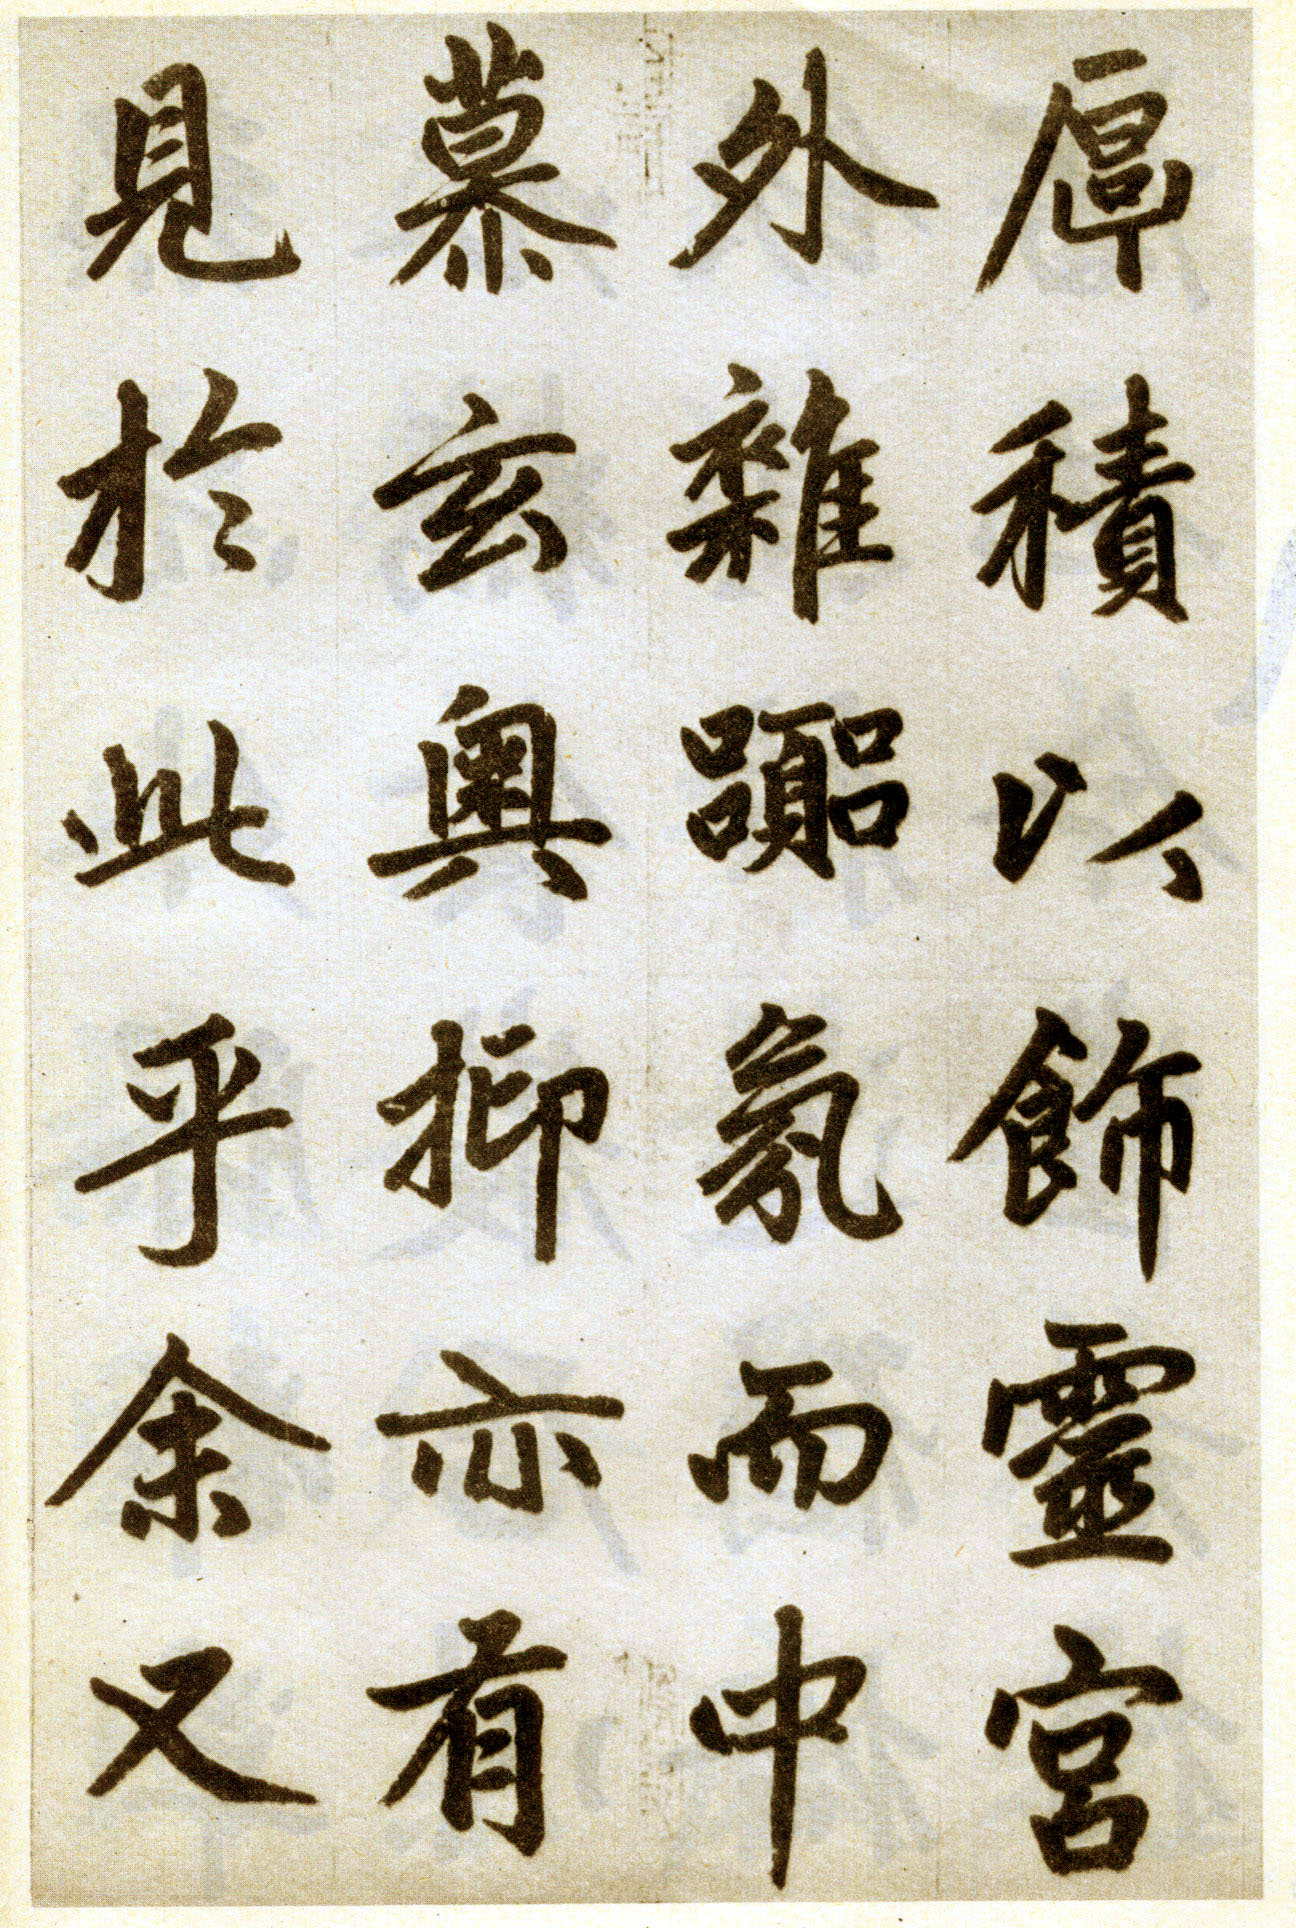 厚積以飾靈宮
外雜嚻氛而中
慕玄奥抑亦有
見於此乎余又